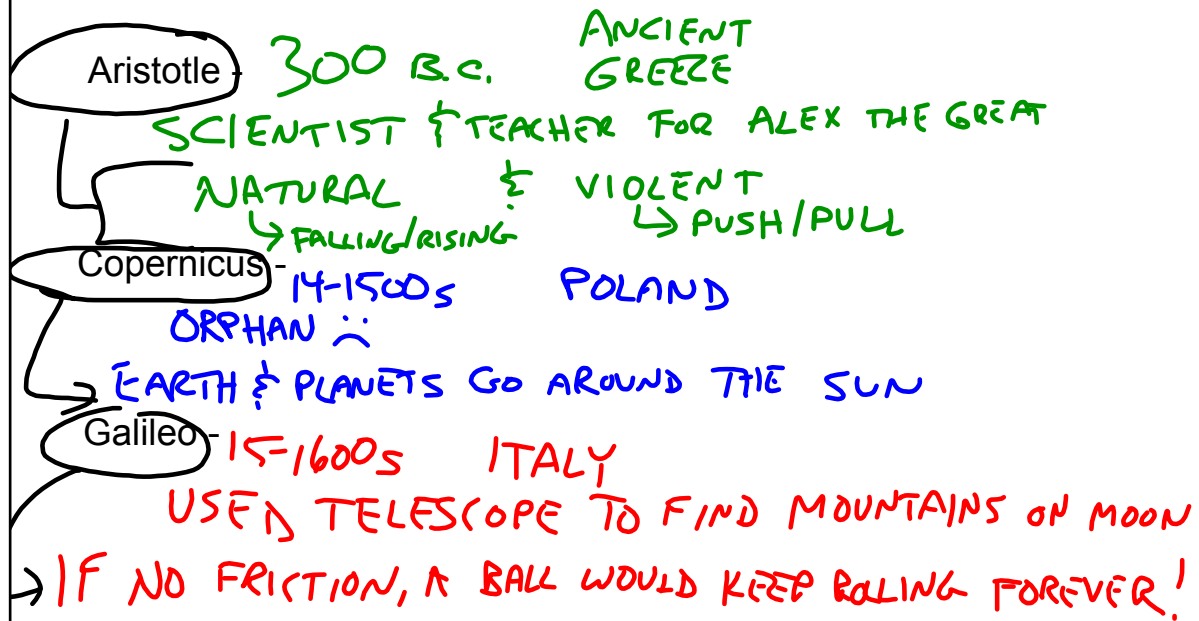 Aristotle - 300 B.C. ANCIENT GREEZE
SCIENTIST & TEACHER FOR ALEX THE GREAT
NATURAL & VIOLENT
↳ FALLING/RISING ↳ PUSH/PULL
Copernicus - 14-1500s POLAND
ORPHAN ☹
EARTH & PLANETS GO AROUND THE SUN
Galileo - 15-1600s ITALY
USED TELESCOPE TO FIND MOUNTAINS ON MOON
→ IF NO FRICTION, A BALL WOULD KEEP ROLLING FOREVER!